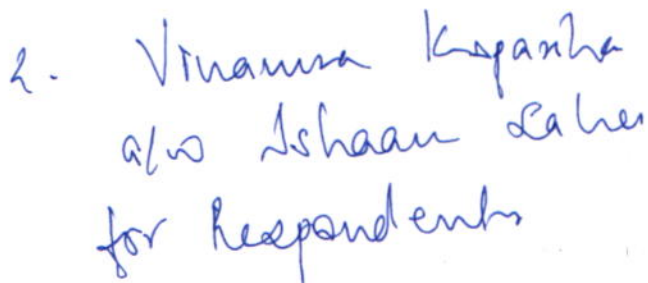 2. Vinamra Kopariha
a/w Ishaan Lahei
for Respondents